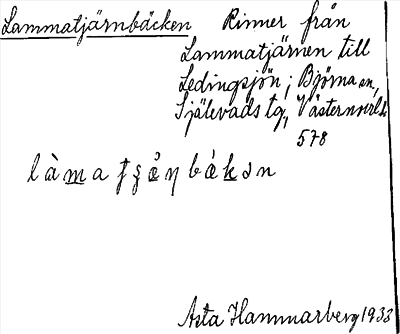 Lammatjärnbäcken Rinner från
Lammatjärnen till
Ledingsjön; Björna sn,
Själevads tg, Västernorrl.
578
Asta Hammarberg 1933